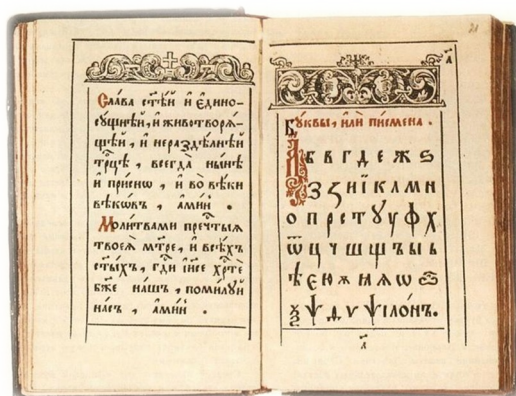 Сла́ва ст҃ѣ́й и҆ є҆дино-
сꙋ́щнѣй, и҆ животворѧ́-
щей, и҆ нераздѣ́лнѣй
трⷪ҇цѣ, всегда̀ ны́нѣ
и҆ при́снѡ, и҆ во вѣ́ки
вѣкѡ́въ, а҆ми́нь.
Моли́твами пречⷭ҇тыѧ
твоеѧ̀ мт҃ре, и҆ всѣ́хъ
ст҃ы́хъ, гдⷭ҇и і҆и҃се хрⷭ҇те́
бж҃е на́шъ, поми́лꙋй
на́съ, а҆ми́нь.
21
Бꙋ́квы, и҆лѝ писмена̀.
А Б В Г Д Е Ж Ѕ
З Ꙁ И Ї К Л М Н
О П Р С Т Ꙋ У Ф Х
Ѿ Ц Ч Ш Щ Ъ Ы Ь
Ѣ Є Ю Ѫ Ꙗ Ѧ Ѡ Ѽ
Ѯ Ѱ Ѳ Ѵ Ѱїло́нъ.